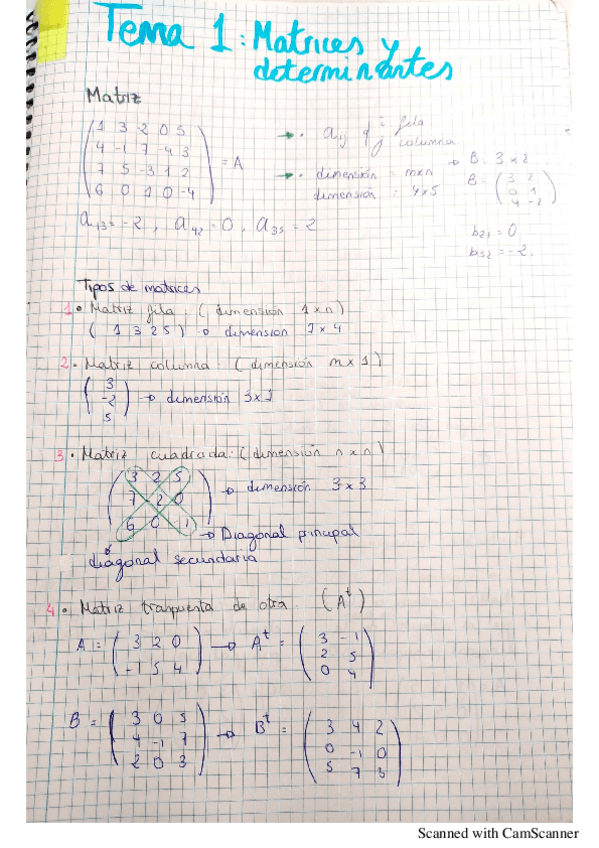 Tema 1: Matrices y
determinantes
Matriz
( 1 3 -2 0 5 )
( 4 -1 7 -4 3 ) = A
( 7 5 -3 1 2 )
( 6 0 1 0 -4 )
→ • aij i fila
j columna
→ • dimensión = m×n
dimensión : 4×5
→ B: 3×2
B = ( 3 2 )
( 0 1 )
( 4 -2 )
a13 = -2, a42 = 0, a35 = 2
b21 = 0
b32 = -2.
Tipos de matrices
1• Matriz fila: (dimensión 1×n)
( 1 3 2 5 ) → dimensión 1×4
2• Matriz columna: (dimensión m×1)
( 3 )
( -2 ) → dimensión 3×1
( 5 )
3• Matriz cuadrada: (dimensión n×n)
( 3 2 5 )
( 7 -2 0 ) → dimensión 3×3
( 6 0 1 )
→ Diagonal principal
diagonal secundaria
4• Matriz traspuesta de otra (Aᵗ)
A = ( 3 2 0 ) → Aᵗ = ( 3 -1 )
( -1 5 4 ) ( 2 5 )
( 0 4 )
B = ( 3 0 5 ) → Bᵗ = ( 3 4 2 )
( 4 -1 7 ) ( 0 -1 0 )
( 2 0 3 ) ( 5 7 3 )
Scanned with CamScanner